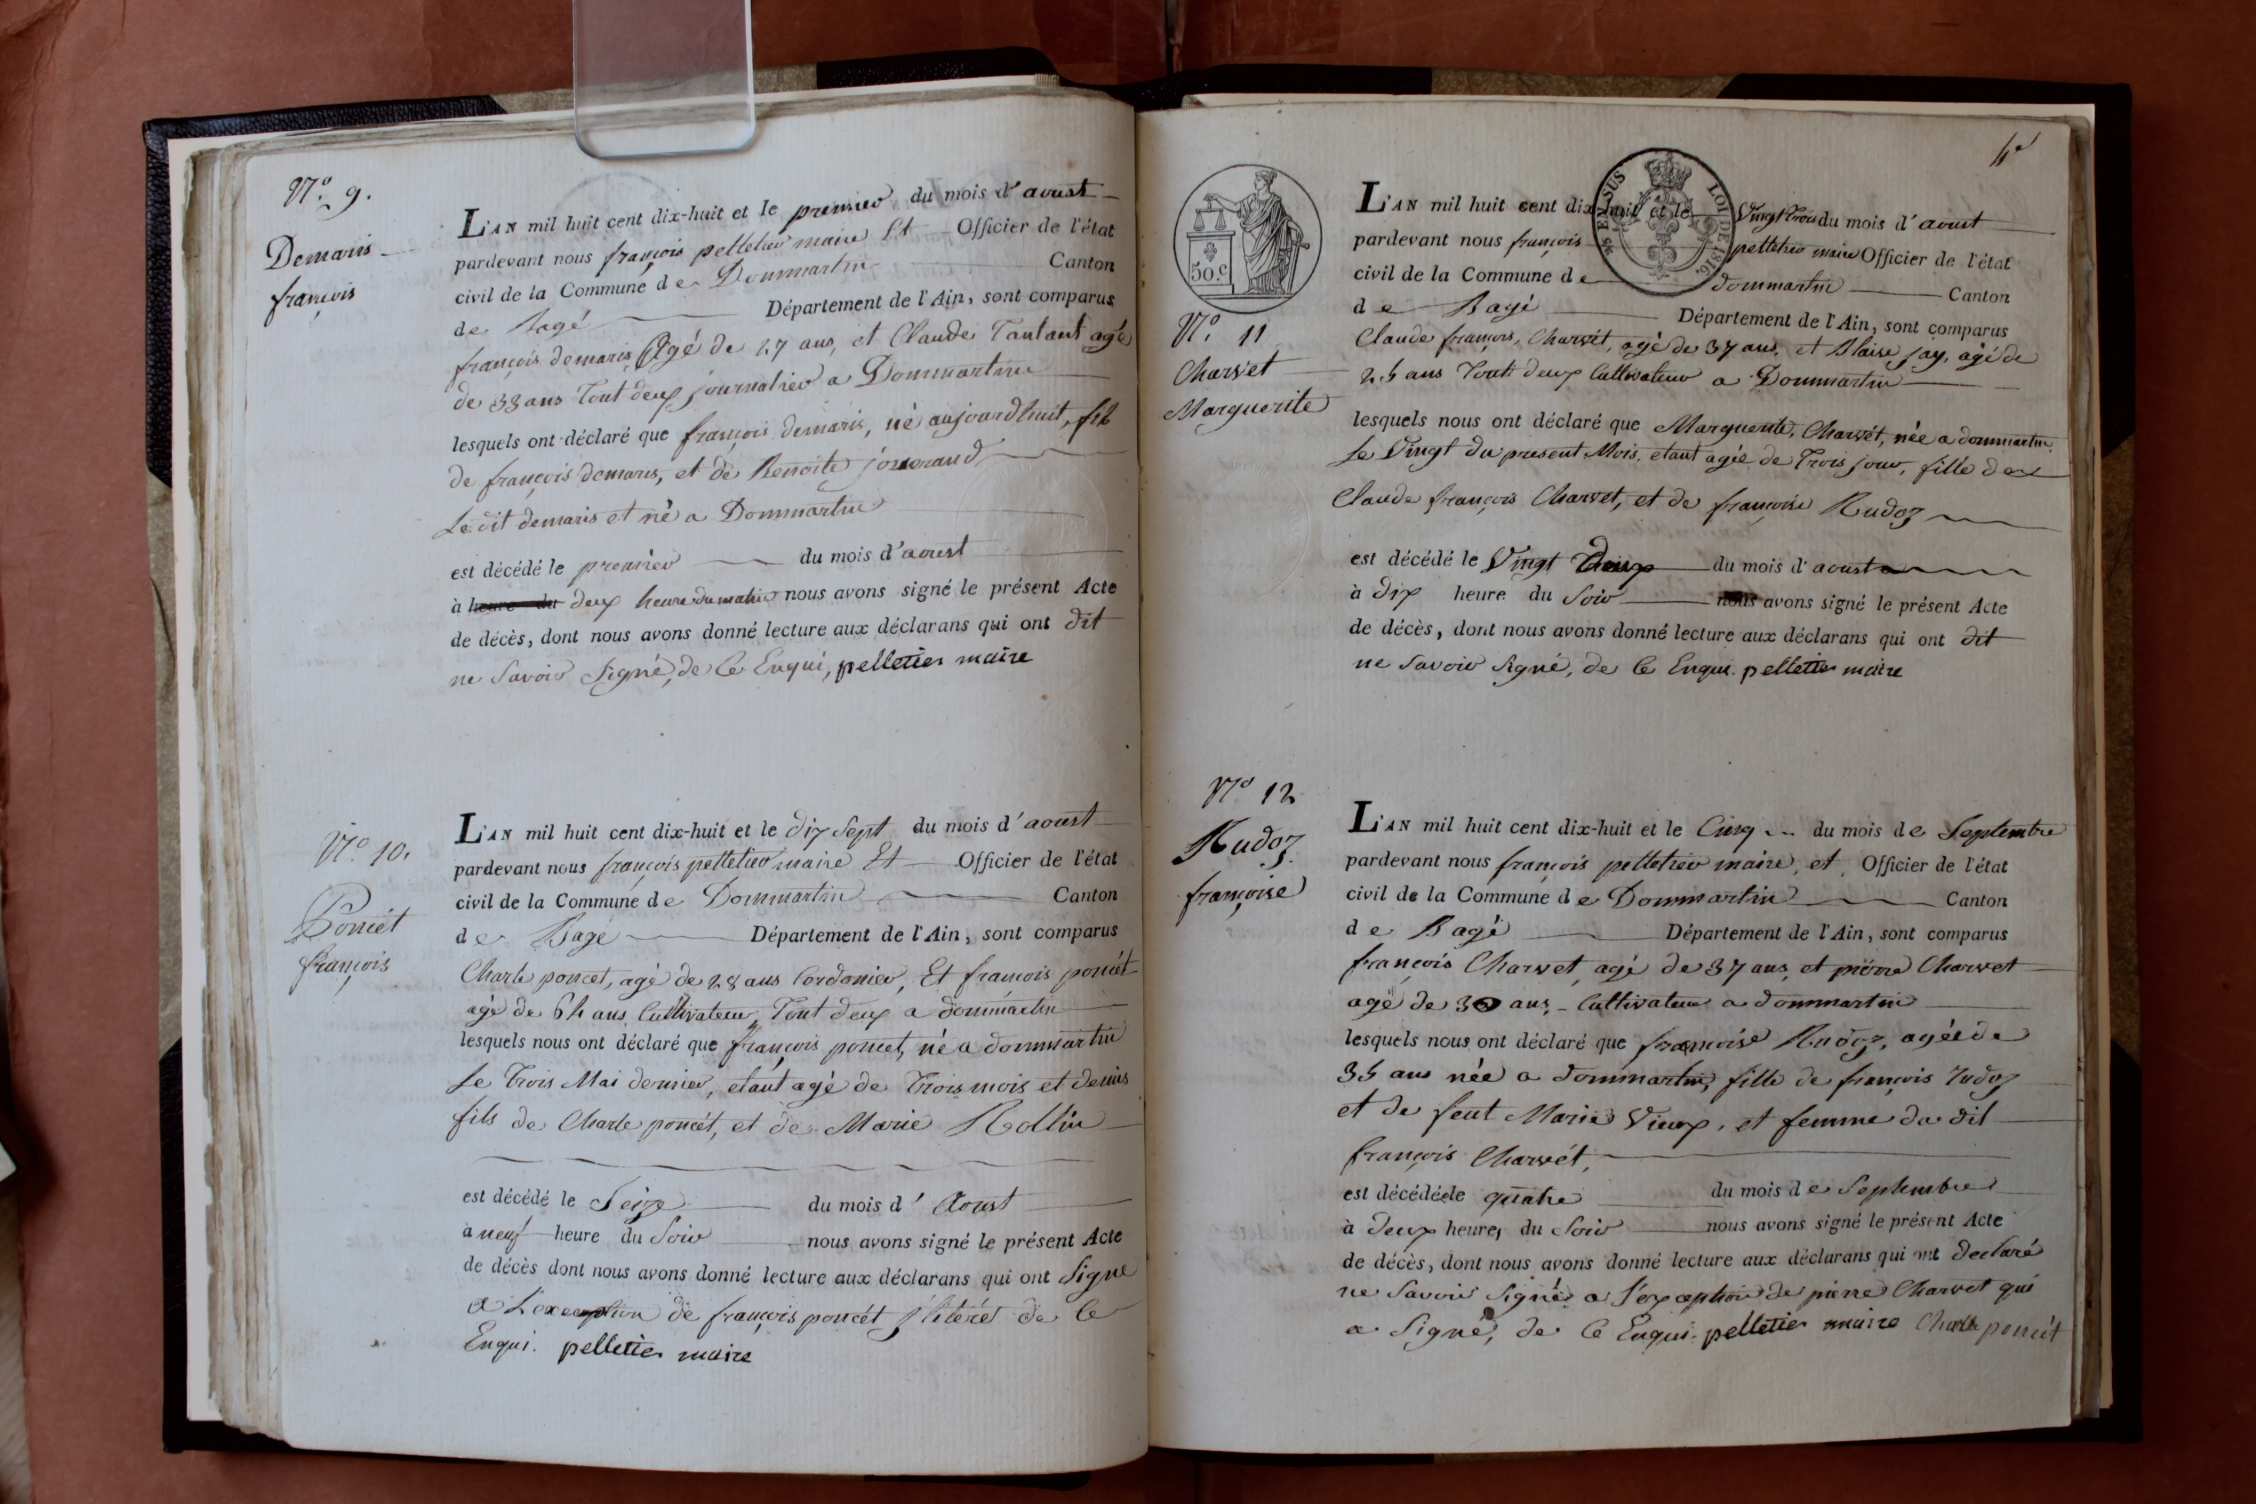 N.o 9.
Demaris
françois
L'AN mil huit cent dix-huit et le premier du mois d'aoust
pardevant nous françois pelletier maire Et Officier de l'état
civil de la Commune de Dommartin Canton
de Bagé Département de l'Ain, sont comparus
françois demaris, Agé de 27 ans, et Claude Tantant agé
de 33 ans Tout deux journalier a Dommartin
lesquels ont déclaré que françois demaris, né aujourdhuit, fils
de françois demaris, et de Benoite joueraud
Ledit demaris et né a Dommartin
est décédé le premier du mois d'aoust
à heure du deux heure du matin nous avons signé le présent Acte
de décès, dont nous avons donné lecture aux déclarans qui ont dit
ne Savoir Signé, de Ce Enqui, pelletier maire
N.o 10.
Poncét
françois
L'AN mil huit cent dix-huit et le dix Sept du mois d'aoust
pardevant nous françois pelletier maire Et Officier de l'état
civil de la Commune de Dommartin Canton
de Bagé Département de l'Ain, sont comparus
Charle poncet, agé de 28 ans Cordonier, Et françois poncét
agé de 64 ans Cultivateur, Tout deux a dommartin
lesquels nous ont déclaré que françois poncet, né a dommartin
Le Trois Mai dernier, etant agé de Trois mois et demis
fils de Charle poncét, et de Marie Rollin
est décédé le Seize du mois d'Aoust
à neuf heure du Soir nous avons signé le présent Acte
de décès dont nous avons donné lecture aux déclarans qui ont Signé
a L'exception de françois poncét jlitérét de Ce
Enqui. pelletier maire
4e
50.c
96 EN SUS
LOI DE 1816.
N.o 11
Charvet
Marguerite
L'AN mil huit cent dix-huit et le Vingt Trois du mois d'aoust
pardevant nous françois pelletier maire Officier de l'état
civil de la Commune de dommartin Canton
de Bagé Département de l'Ain, sont comparus
Claude françois, Charvét, agé de 37 ans, et Blaise jay, agé de
25 ans Tout deux Cultivateur a Dommartin
lesquels nous ont déclaré que Marguerite, Charvét, née a dommartin
Le Vingt du present Mois, etant agée de Trois jour, fille de
Claude françois Charvet, et de françoise Rudoz
est décédé le Vingt Deux du mois d'aoust
à dix heure du Soir nous avons signé le présent Acte
de décès, dont nous avons donné lecture aux déclarans qui ont dit
ne Savoir Signé, de Ce Enqui. pelletier maire
N.o 12
Rudoz
françoise
L'AN mil huit cent dix-huit et le Cinq du mois de Septembre
pardevant nous françois pelletier maire, et Officier de l'état
civil de la Commune de Dommartin Canton
de Bagé Département de l'Ain, sont comparus
françois Charvet, agé de 37 ans, et pierre Charvet
agé de 30 ans, Cultivateur a dommartin
lesquels nous ont déclaré que françoise Rudoz, agée de
35 ans née a dommartin, fille de françois rudoz
et de feut Marie Vieux, et femme du dit
françois Charvét,
est décédée le quatre du mois de Septembre
à Deux heures du Soir nous avons signé le présent Acte
de décès, dont nous avons donné lecture aux déclarans qui ont declaré
ne Savoir Signé a L'exception de pierre Charvet qui
a Signé, de Ce Enqui. pelletier maire Charle poncét